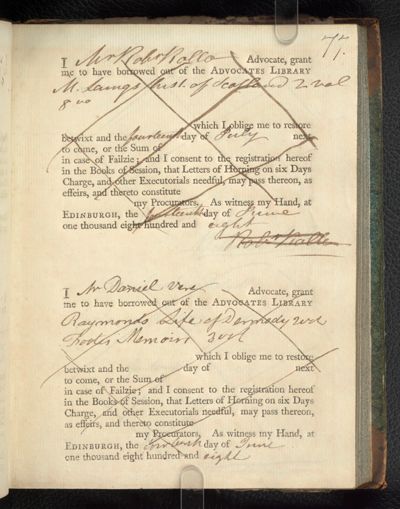 77.
I Mr Robt Rollo Advocate, grant
me to have borrowed out of the ADVOCATES LIBRARY
M. Laings hist. of Scotland 2 vol
8vo
which I oblige me to restore
betwixt and the fourteenth day of July next
to come, or the Sum of
in case of Failzie; and I consent to the registration hereof
in the Books of Session, that Letters of Horning on six Days
Charge, and other Executorials needful, may pass thereon, as
effeirs, and thereto constitute
my Procurators, As witness my Hand, at
EDINBURGH, the day of June
one thousand eight hundred and eight
Robt Rollo
I Mr Daniel Vere Advocate, grant
me to have borrowed out of the ADVOCATES LIBRARY
Raymonds Life of Dermody 2 vol
Footes Memoirs 3 vol
which I oblige me to restore
betwixt and the day of next
to come, or the Sum of
in case of Failzie; and I consent to the registration hereof
in the Books of Session, that Letters of Horning on six Days
Charge, and other Executorials needful, may pass thereon, as
effeirs, and thereto constitute
my Procurators, As witness my Hand, at
EDINBURGH, the day of June
one thousand eight hundred and eight